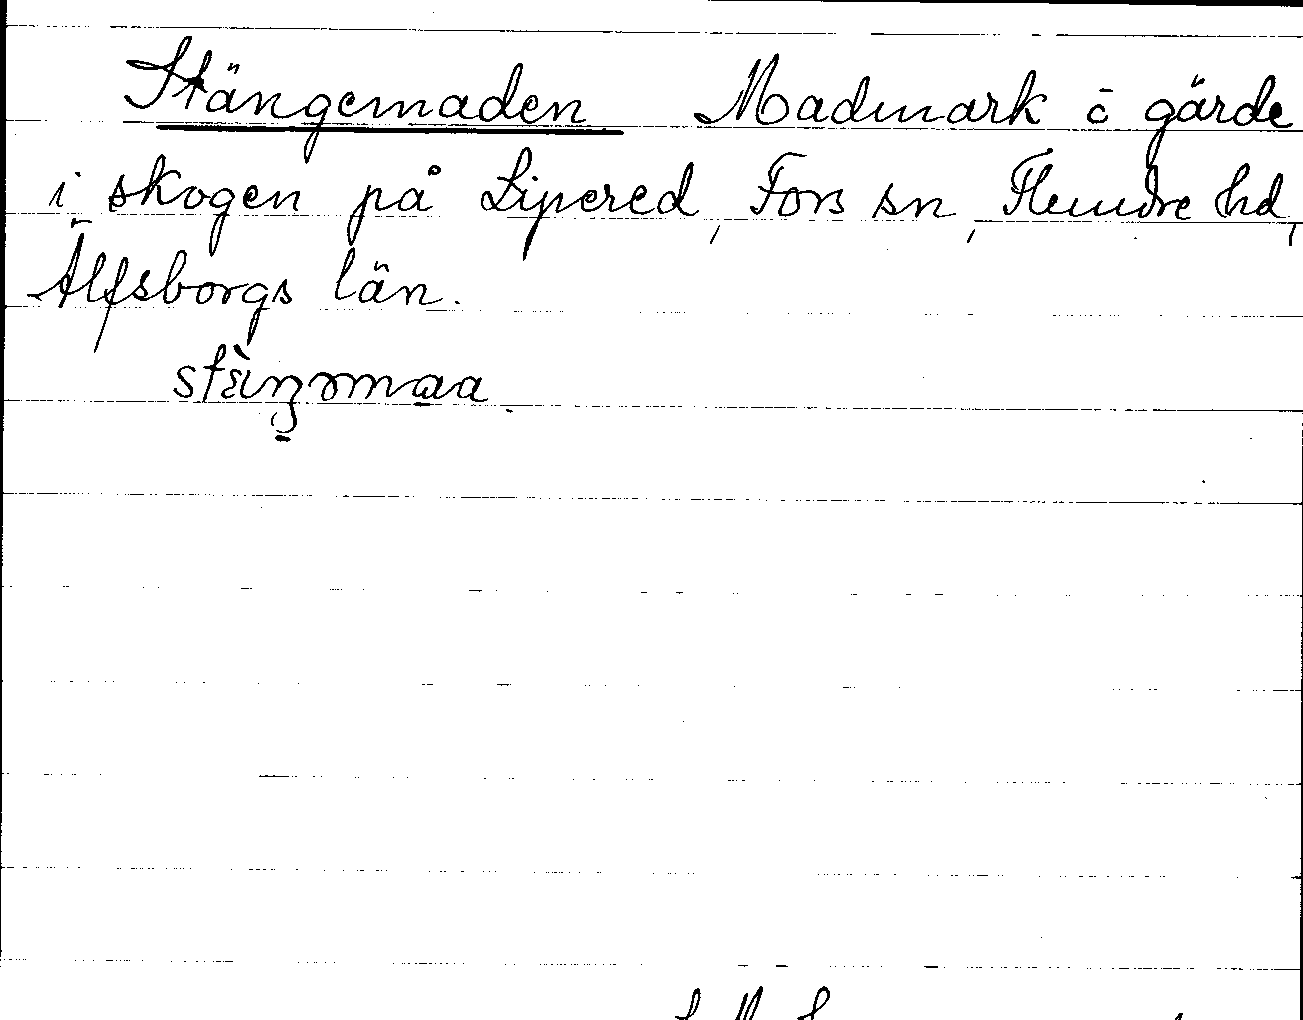 Stängemaden Madmark o gärde
i skogen på Lipered, Fors sn, Flundre hd,
Älfsborgs län.